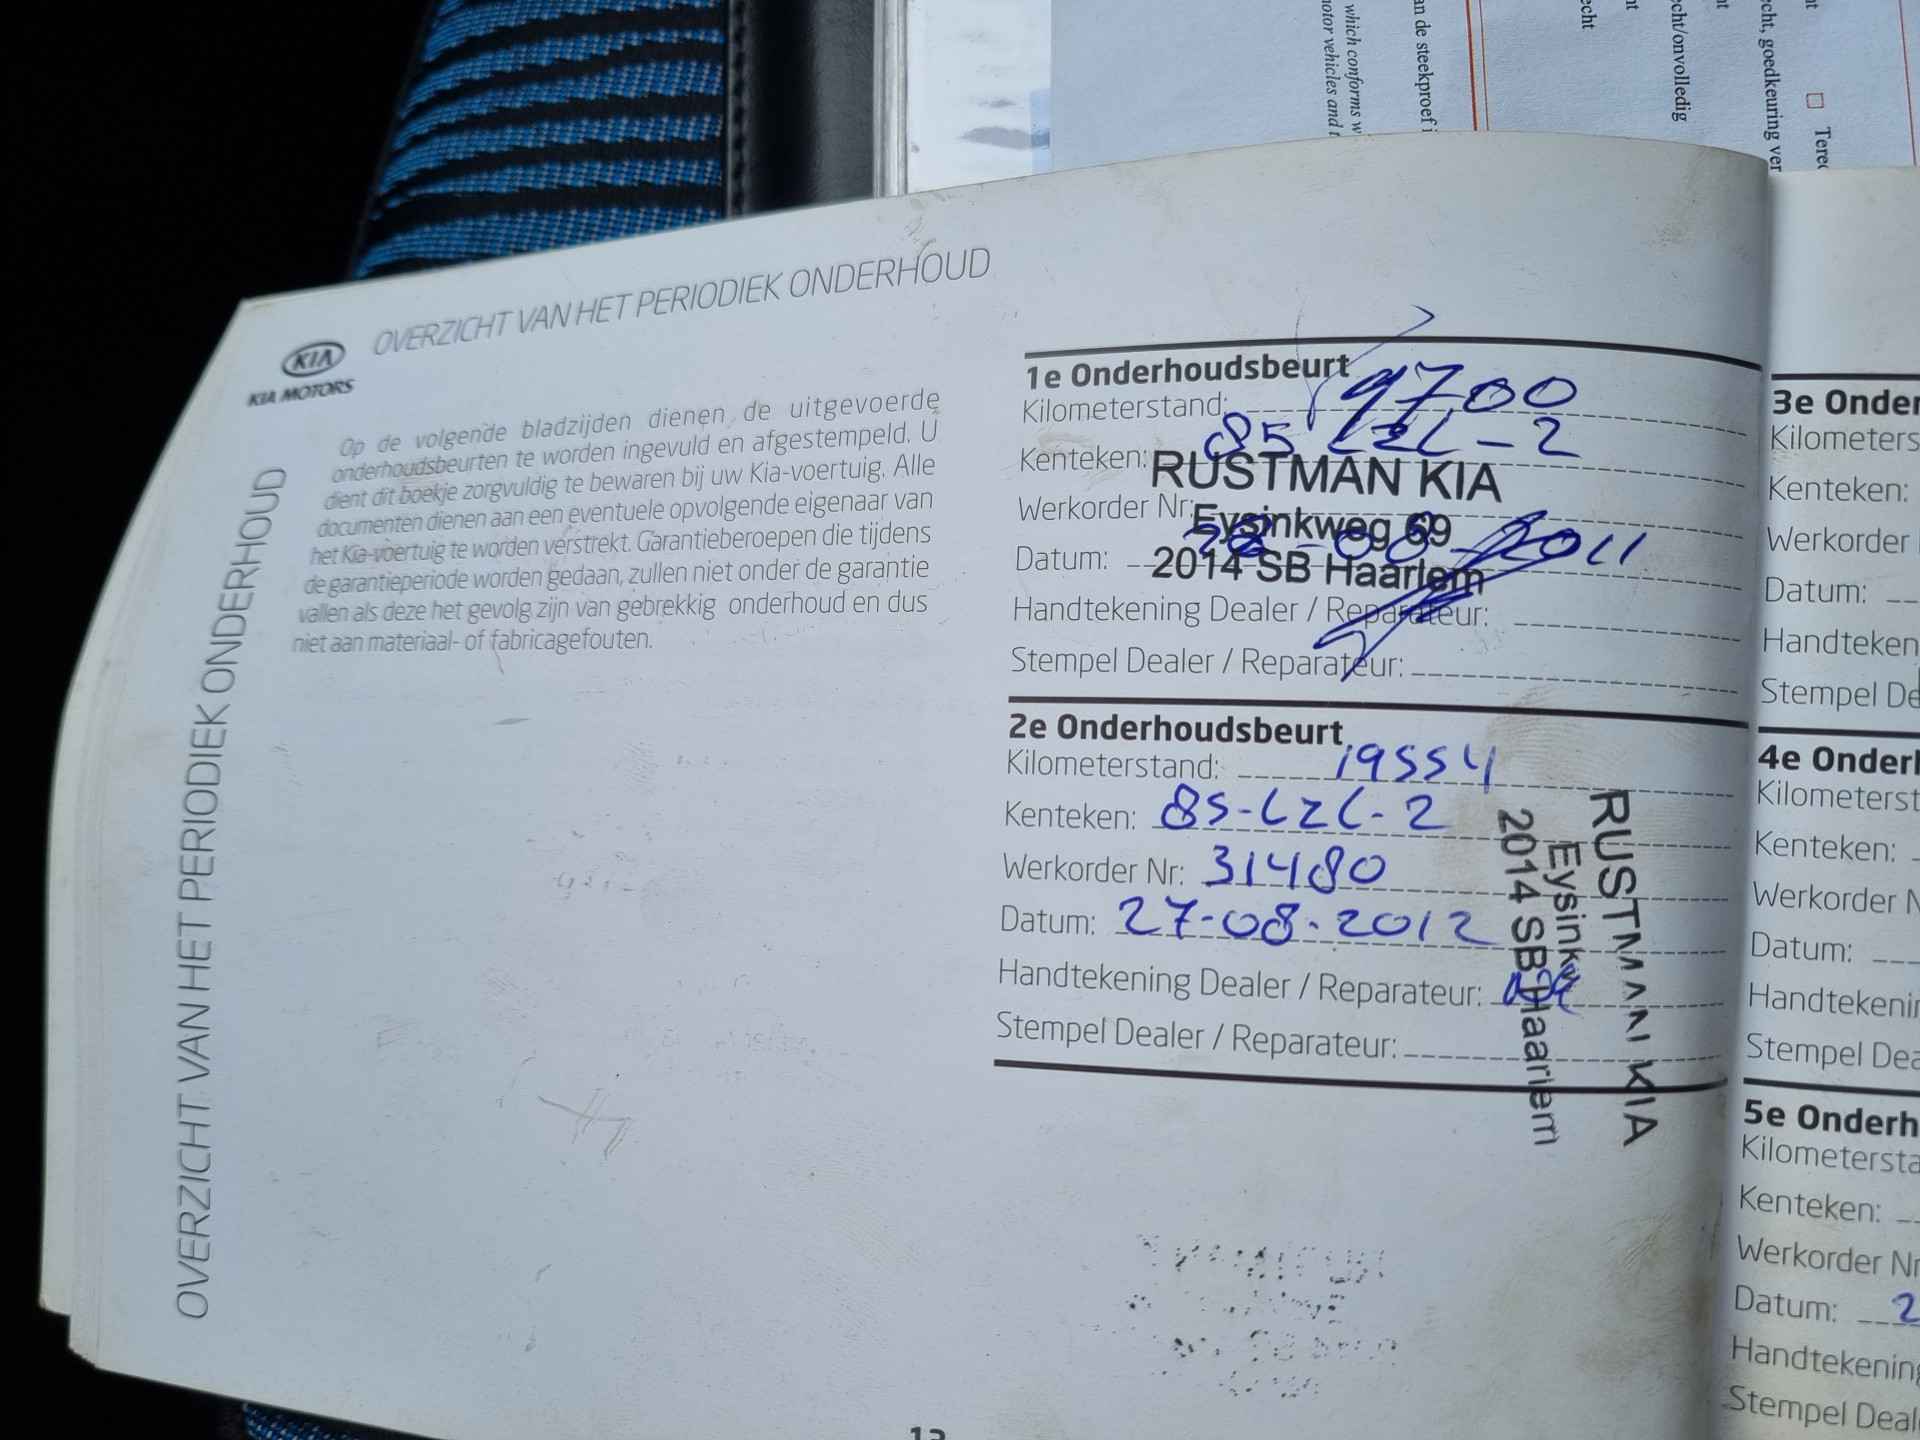 which conforms w
motor vehicles and t
an de steekproef i
echt
cht/onvolledig
cht, goedkeuring ver
OVERZICHT VAN HET PERIODIEK ONDERHOUD
KIA
KIA MOTORS
Op de volgende bladzijden dienen de uitgevoerde
onderhoudsbeurten te worden ingevuld en afgestempeld. U
dient dit boekje zorgvuldig te bewaren bij uw Kia-voertuig. Alle
documenten dienen aan een eventuele opvolgende eigenaar van
het Kia-voertuig te worden verstrekt. Garantieberoepen die tijdens
de garantieperiode worden gedaan, zullen niet onder de garantie
vallen als deze het gevolg zijn van gebrekkig onderhoud en dus
niet aan materiaal- of fabricagefouten.
OVERZICHT VAN HET PERIODIEK ONDERHOUD
1e Onderhoudsbeurt
Kilometerstand: 9700
Kenteken: 85 LZL-2
RUSTMAN KIA
Werkorder Nr:
Eysinkweg 69
Datum: -08-2011
2014 SB Haarlem
Handtekening Dealer / Reparateur:
Stempel Dealer / Reparateur:
2e Onderhoudsbeurt
Kilometerstand: 19554
Kenteken: 85-LZL-2
Werkorder Nr: 31480
Datum: 27-08-2012
Handtekening Dealer / Reparateur:
Stempel Dealer / Reparateur:
RUSTMAN KIA
Eysinkw
2014 SB Haarlem
3e Onder
Kilometers
Kenteken:
Werkorder
Datum:
Handteken
Stempel De
4e Onderh
Kilometerst
Kenteken:
Werkorder N
Datum:
Handtekenin
Stempel Dea
5e Onderh
Kilometersta
Kenteken:
Werkorder Nr
Datum: 2
Handtekening
Stempel Deal